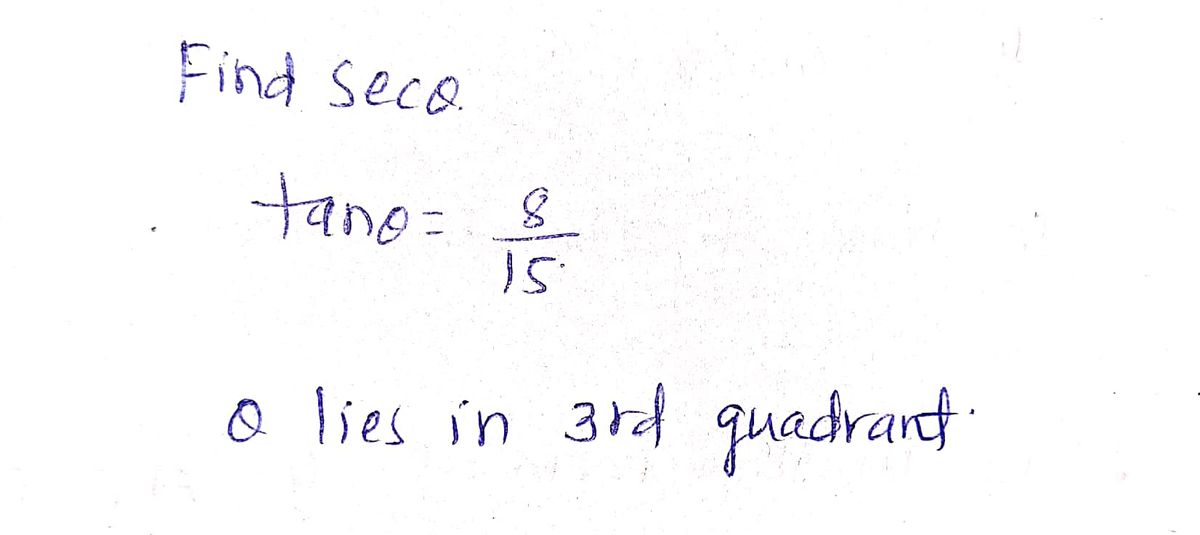 Find secθ
tanθ = 8/15
θ lies in 3rd quadrant.